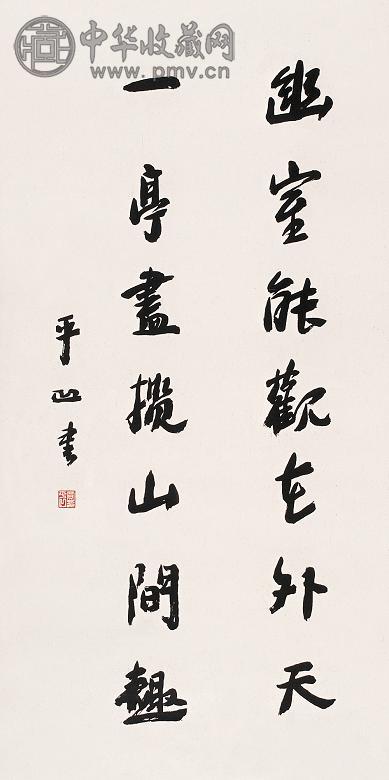 中华收藏网
www.pmv.cn
幽室能觀世外天
一亭盡攬山間趣
平凹書